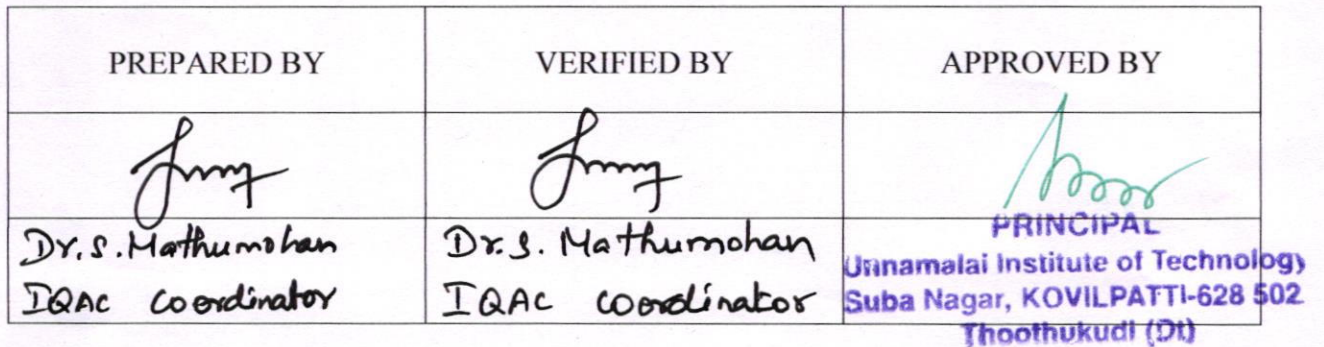 PREPARED BY
VERIFIED BY
APPROVED BY
Dr. S. Mathumohan
IQAC Coordinator
Dr. S. Mathumohan
IQAC Coordinator
PRINCIPAL
Unnamalai Institute of Technology
Suba Nagar, KOVILPATTI-628 502
Thoothukudi (Dt)